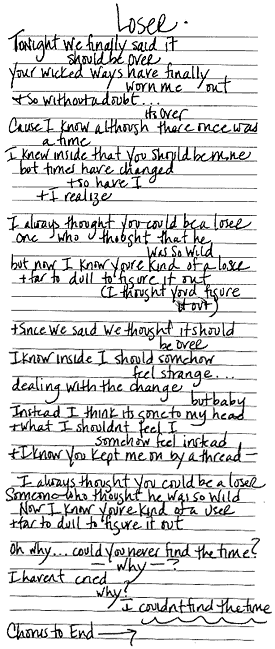 Loser.
Tonight we finally said it
should be over
your wicked ways have finally
worn me out
+ so without a doubt...
its over
Cause I know although there once was
a time
I knew inside that you should be mine
but times have changed
+ so have I
+ I realize
I always thought you could be a loser
one who thought that he
was so wild
but now I know you're kind of a loser
+ far to dull to figure it out
(I thought you'd figure
it out)
+ Since we said we thought it should
be over
I know inside I should somehow
feel strange...
dealing with the change
but baby
Instead I think its gone to my head
+ what I shouldnt feel I
somehow feel instead
+ I know you kept me on by a thread -
I always thought you could be a loser
Someone who thought he was so wild
Now I know you're kind of a user
+ far to dull to figure it out
Oh why... could you never find the time?
— why —?
I havent cried
why?
I couldnt find the time
Chorus to End →